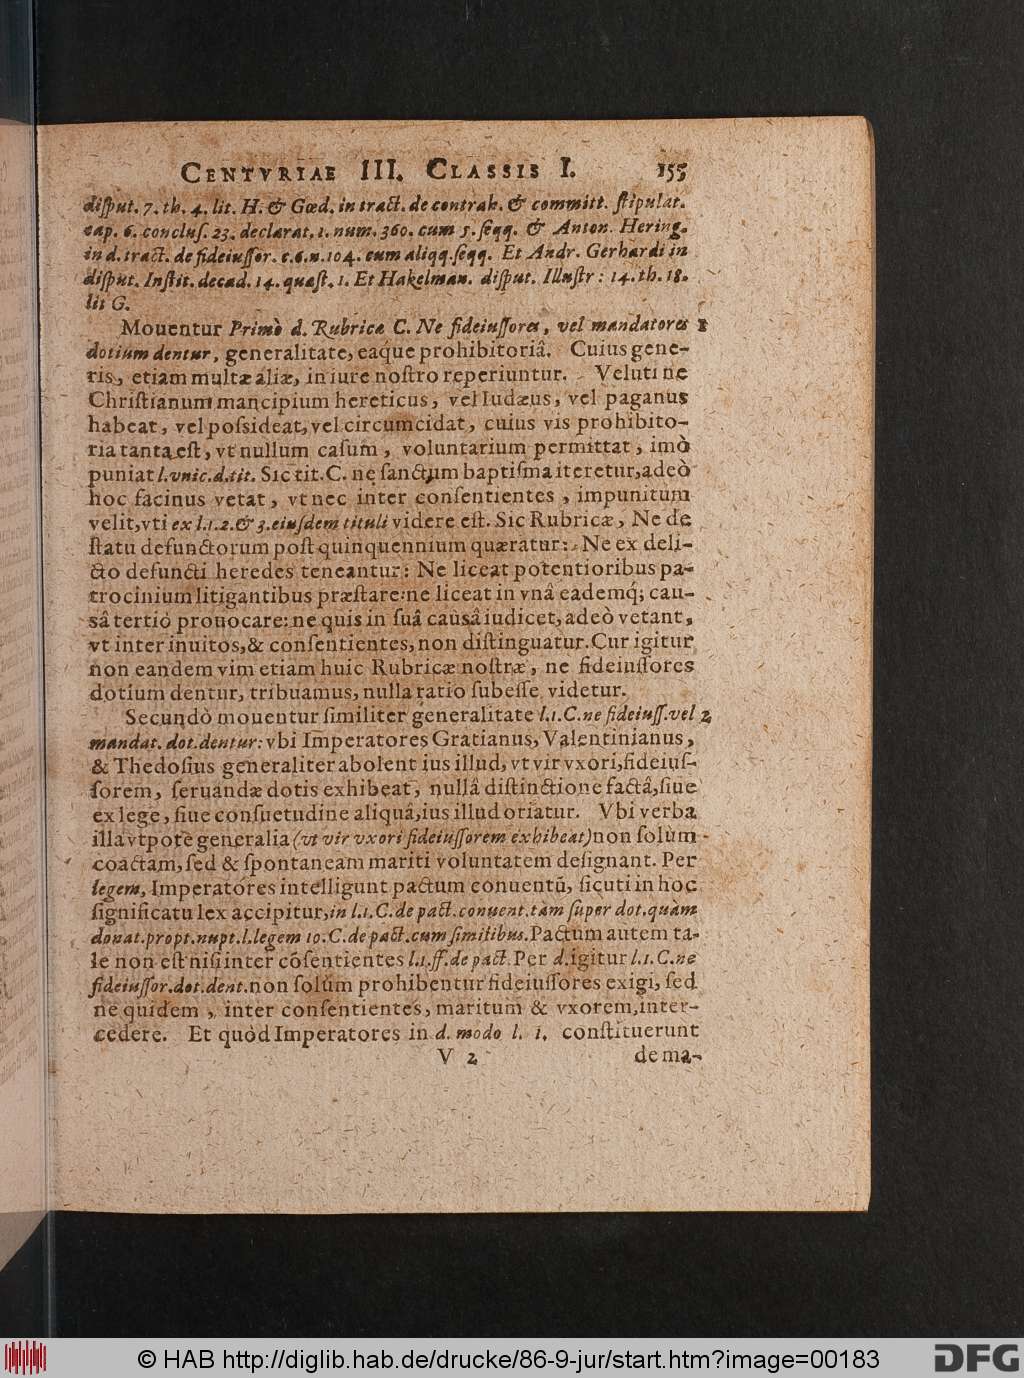 CENTVRIAE III. CLASSIS I. 155
diſput. 7. th. 4. lit. H. & Gœd. in tract. de contrah. & committ. ſtipulat.
cap. 6. concluſ. 23. declarat. 1. num. 360. cum 5. ſeqq. & Anton. Hering.
in d. tract. de fideiuſſor. c. 6. n. 104. cum aliqq. ſeqq. Et Andr. Gerhardi in
diſput. Inſtit. decad. 14. quæſt. 1. Et Hakelman. diſput. Illuſtr : 14. th. 18.
lit G.
Mouentur Primò d. Rubrica C. Ne fideiuſſores, vel mandatores 1
dotium dentur, generalitate, eaq́ue prohibitoriâ. Cuius gene-
ris, etiam multæ aliæ, in iure noſtro reperiuntur. Veluti ne
Chriſtianum mancipium hereticus, vel Iudæus, vel paganus
habeat, vel poſsideat, vel circumcidat, cuius vis prohibito-
ria tanta eſt, vt nullum caſum, voluntarium permittat, imò
puniat l. vnic. d. tit. Sic tit. C. ne ſanctum baptiſma iteretur, adeò
hoc facinus vetat, vt nec inter conſentientes, impunitum
velit, vti ex l. 1. 2. & 3. eiuſdem tituli videre eſt. Sic Rubricæ, Ne de
ſtatu defunctorum poſt quinquennium quæratur: Ne ex deli-
cto defuncti heredes teneantur: Ne liceat potentioribus pa-
trocinium litigantibus præſtare: ne liceat in vnâ eademq́; cau-
sâ tertiò prouocare: ne quis in ſuâ causâ iudicet, adeò vetant,
vt inter inuitos, & conſentientes, non diſtinguatur. Cur igitur
non eandem vim etiam huic Rubricæ noſtræ, ne fideiuſſores
dotium dentur, tribuamus, nulla ratio ſubeſſe videtur.
Secundò mouentur ſimiliter generalitate l. 1. C. ne fideiuſſ. vel 2
mandat. dot. dentur: vbi Imperatores Gratianus, Valentinianus,
& Thedoſius generaliter abolent ius illud, vt vir vxori, fideiuſ-
ſorem, ſeruandæ dotis exhibeat, nullâ diſtinctione factâ, ſiue
ex lege, ſiue conſuetudine aliquâ, ius illud oriatur. Vbi verba
illa vtpote generalia (vt vir vxori fideiuſſorem exhibeat) non ſolùm
coactam, ſed & ſpontaneam mariti voluntatem deſignant. Per
legem, Imperatores intelligunt pactum conuentũ, ſicuti in hoc
ſignificatu lex accipitur, in l. 1. C. de pact. conuent. tàm ſuper dot. quàm
donat. propt. nupt. l. legem 10. C. de pact. cum ſimilibus. Pactum autem ta-
le non eſt niſi inter cõſentientes l. 1. ff. de pact. Per d. igitur l. 1. C. ne
fideiuſſor. dot. dent. non ſolùm prohibentur fideiuſſores exigi, ſed
ne quidem, inter conſentientes, maritum & vxorem, inter-
cedere. Et quòd Imperatores in d. modo l. 1. conſtituerunt
V 2 de ma-
© HAB http://diglib.hab.de/drucke/86-9-jur/start.htm?image=00183
DFG